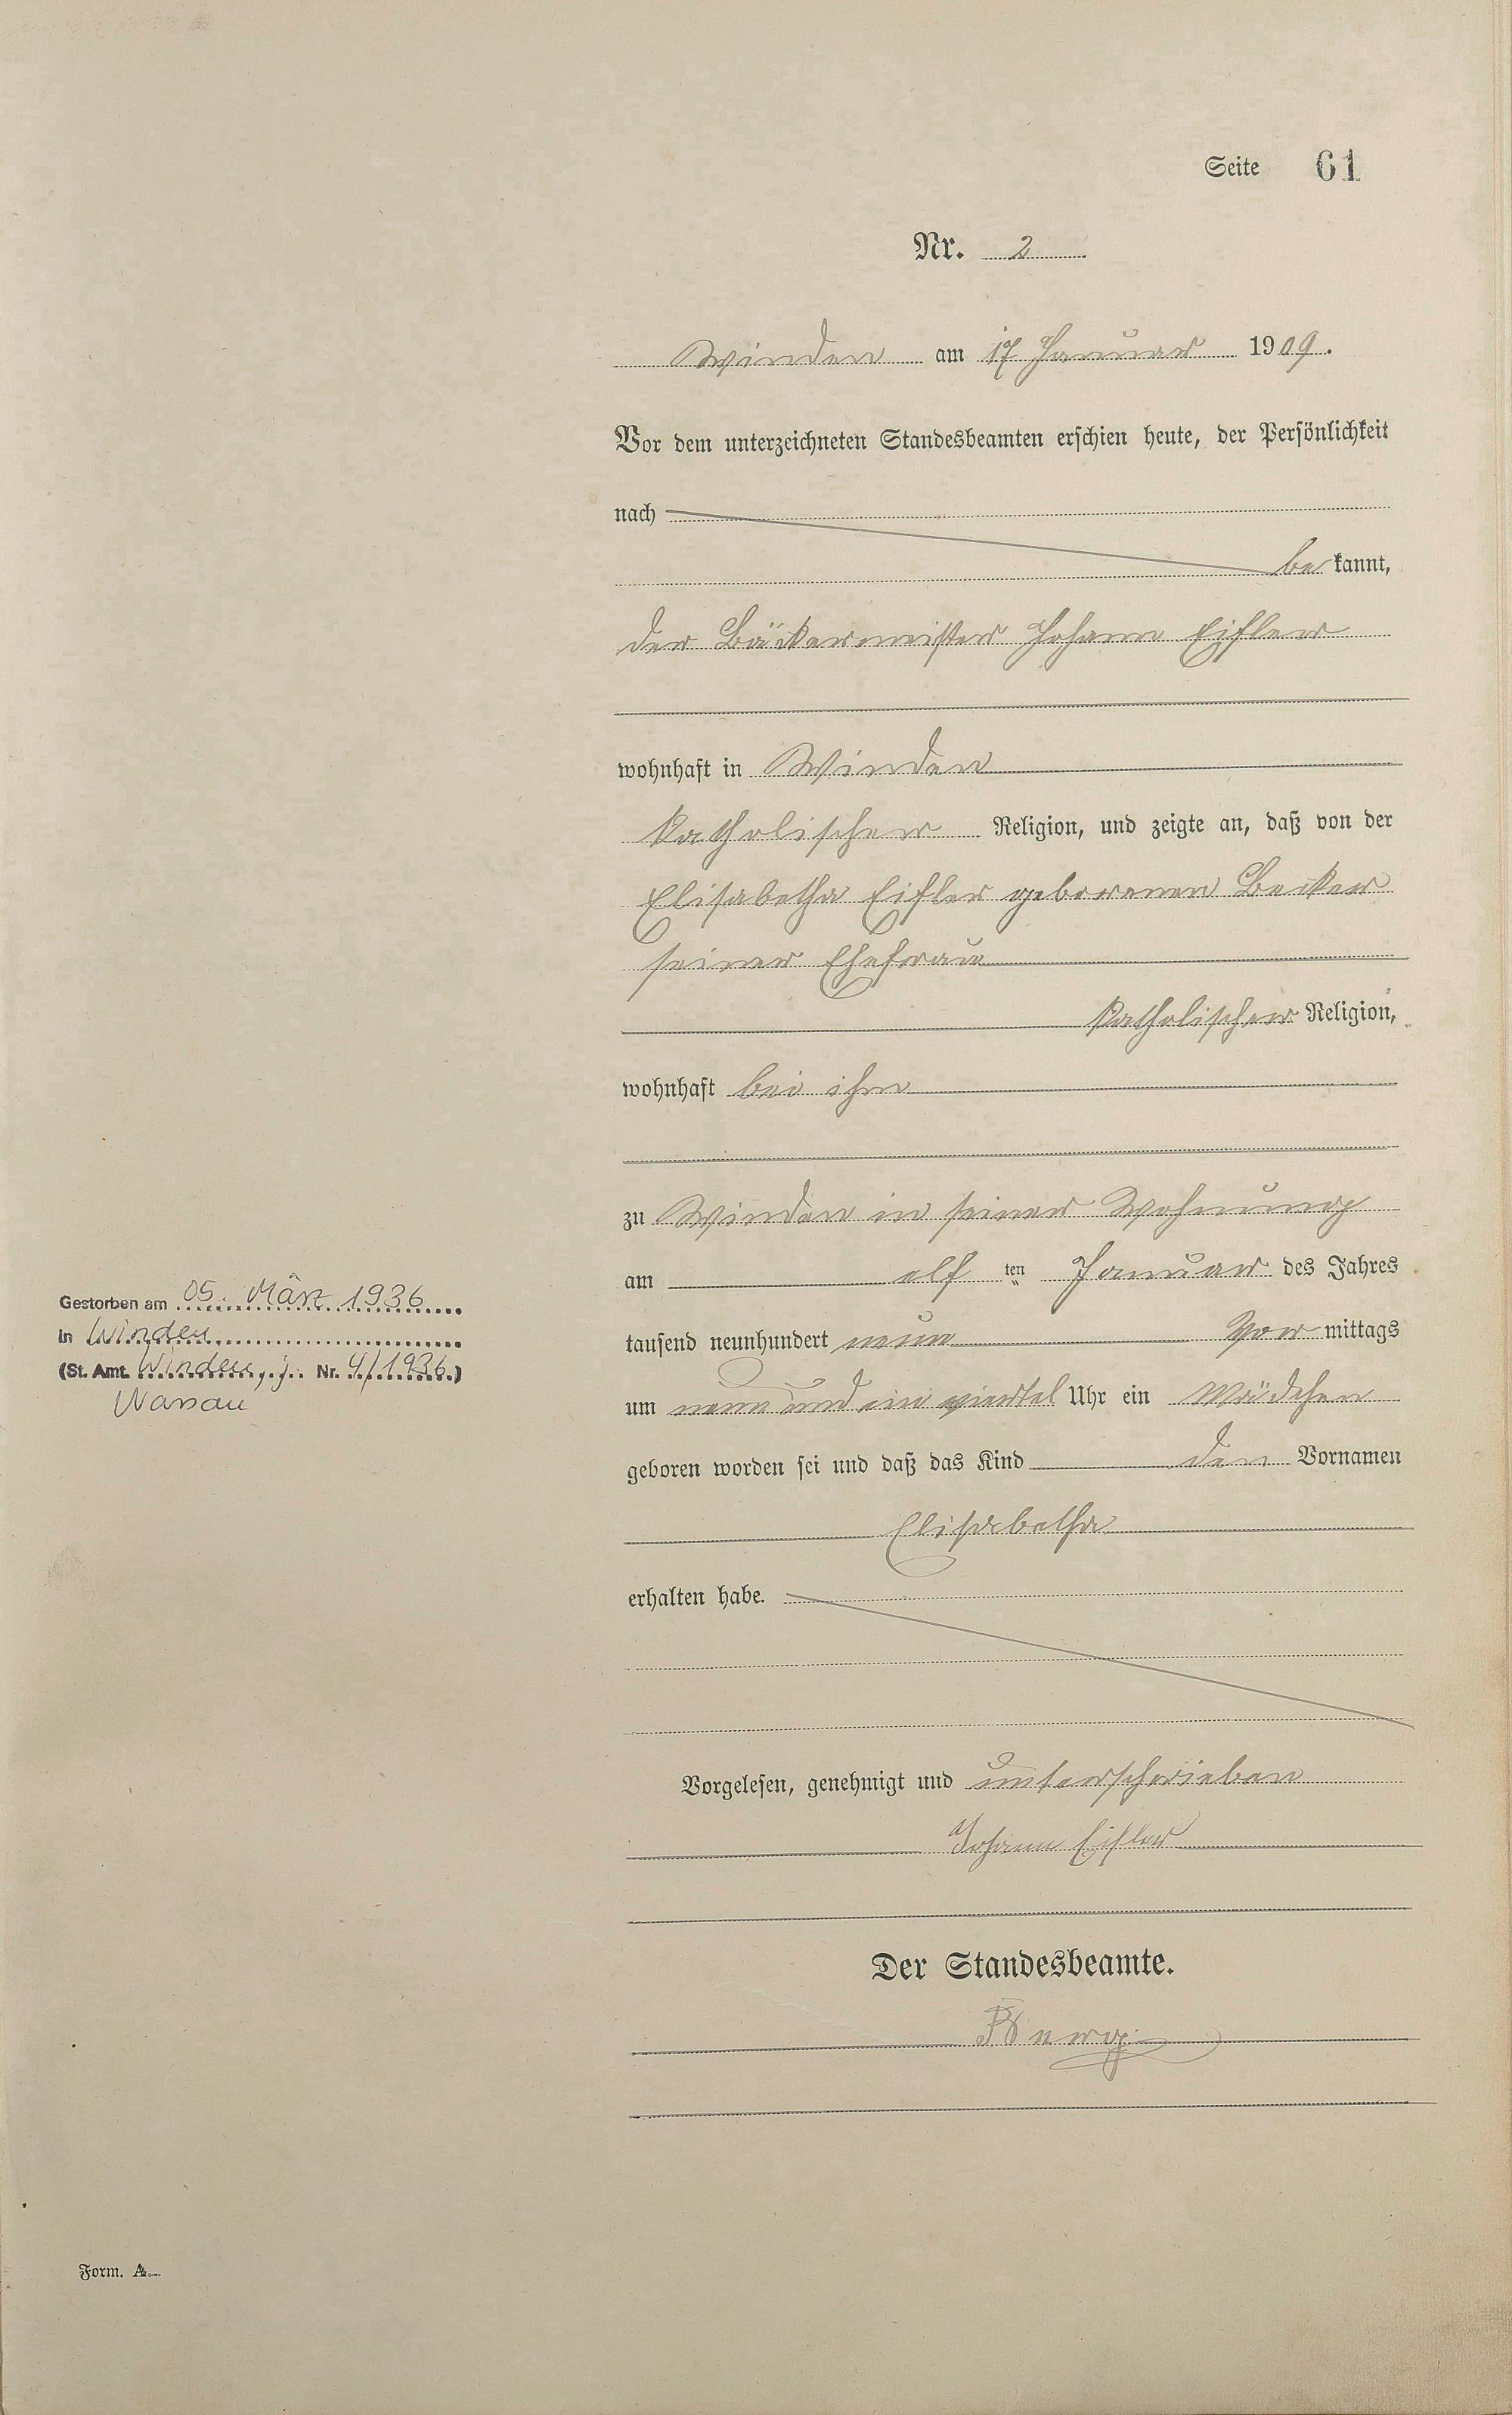 Seite 61
Nr. 2
Winden am 17 Januar 1909.
Vor dem unterzeichneten Standesbeamten erschien heute, der Persönlichkeit
nach
be kannt,
der Bäckermeister Johann Eifler
wohnhaft in Winden
katholischer Religion, und zeigte an, daß von der
Elisabetha Eifler geborenen Becker
seiner Ehefrau
katholischer Religion,
wohnhaft bei ihm
zu Winden in seiner Wohnung
am elf ten Januar des Jahres
tausend neunhundert neun Vor mittags
um neun und ein viertel Uhr ein Mädchen
geboren worden sei und daß das Kind den Vornamen
Elisabetha
erhalten habe.
Vorgelesen, genehmigt und unterschrieben
Johann Eifler
Der Standesbeamte.
Gestorben am 05. März 1936
in Winden
(St. Amt. Winden, j. Nr. 4/1936.)
Nassau
Form. A.